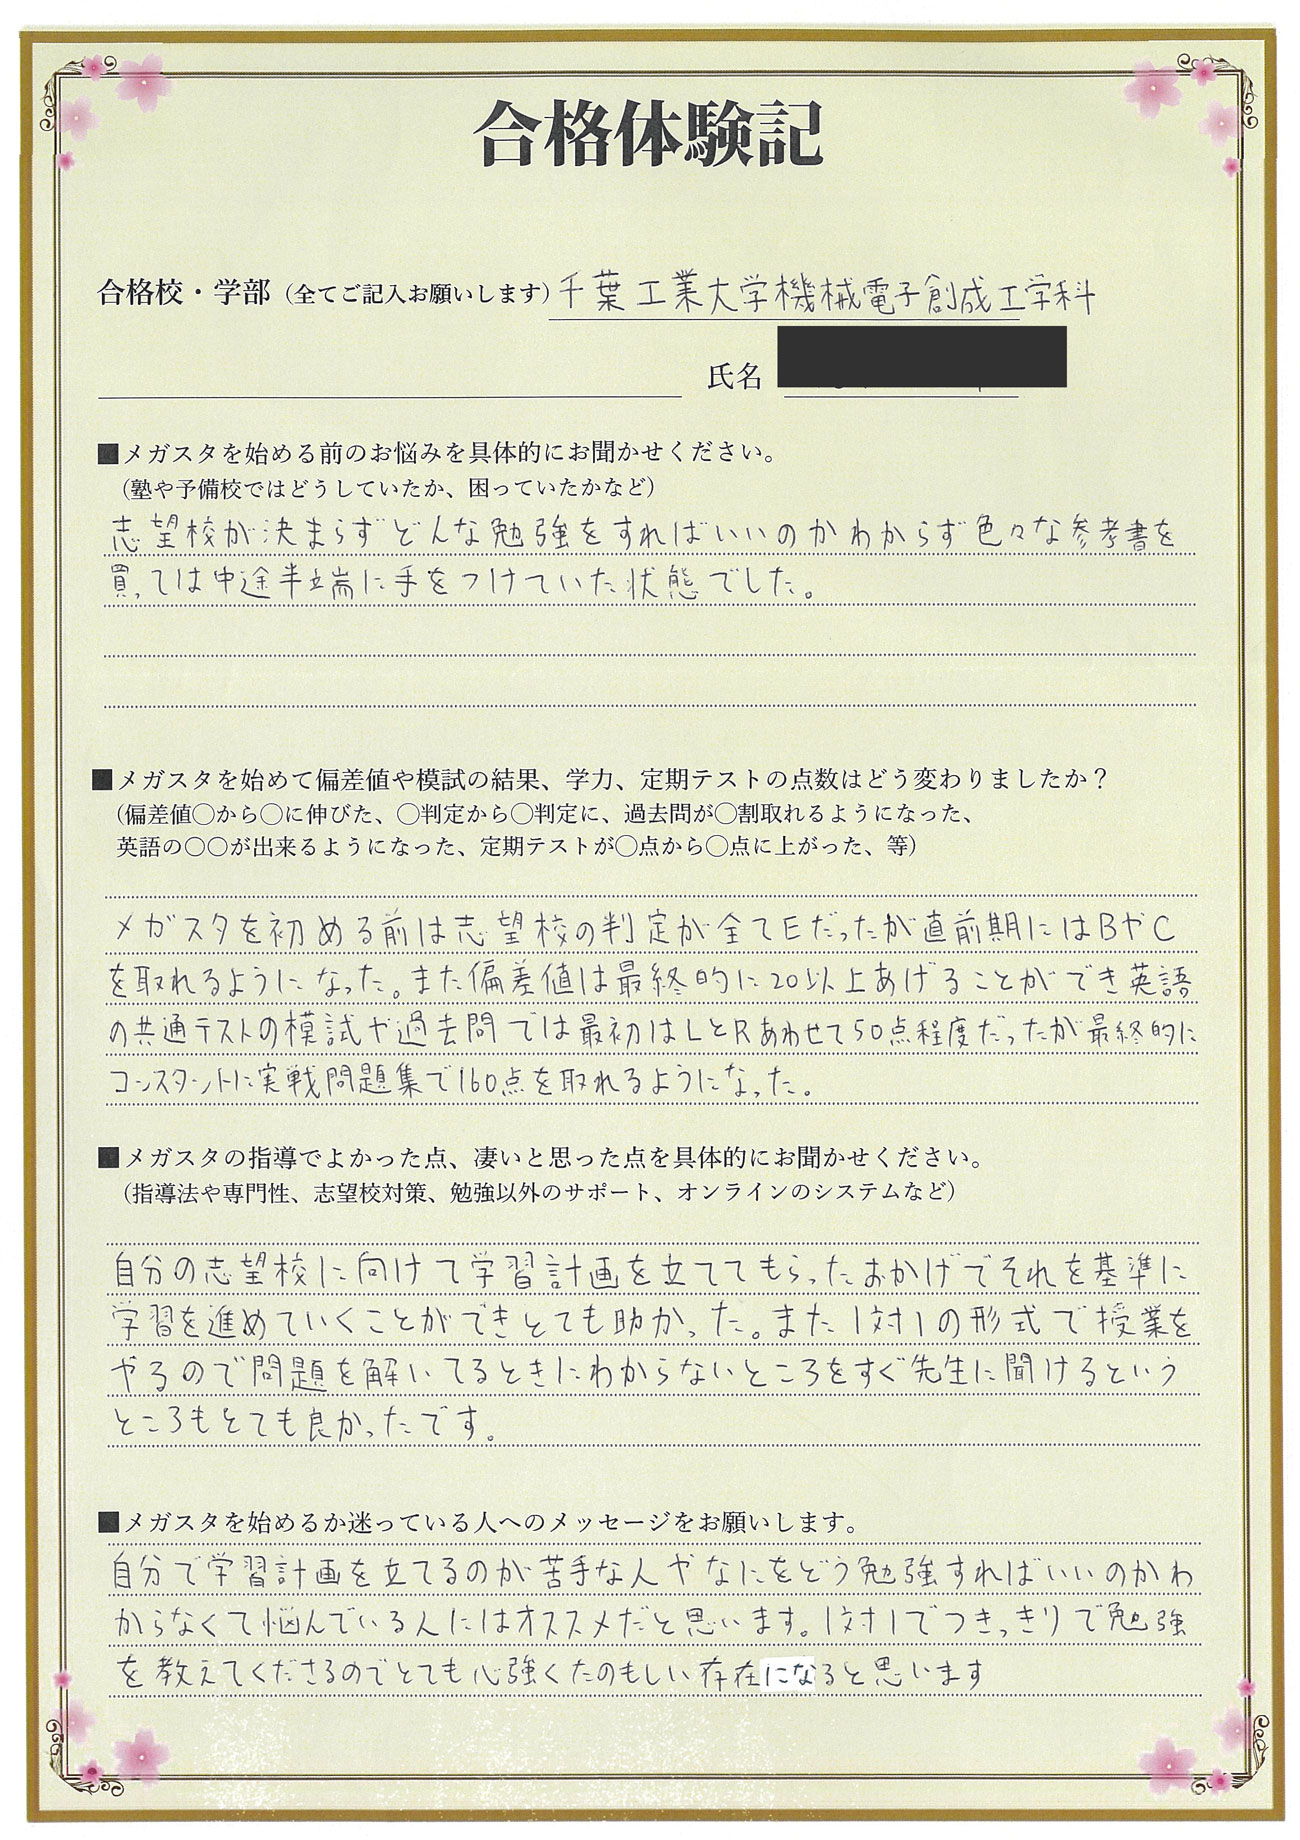 合格体験記
合格校・学部（全てご記入お願いします）千葉工業大学機械電子創成工学科
氏名
■メガスタを始める前のお悩みを具体的にお聞かせください。
（塾や予備校ではどうしていたか、困っていたかなど）
志望校が決まらずどんな勉強をすればいいのかわからず色々な参考書を
買っては中途半端に手をつけていた状態でした。
■メガスタを始めて偏差値や模試の結果、学力、定期テストの点数はどう変わりましたか？
（偏差値〇から〇に伸びた、〇判定から〇判定に、過去問が〇割取れるようになった、
英語の〇〇が出来るようになった、定期テストが〇点から〇点に上がった、等）
メガスタを初める前は志望校の判定が全てEだったが直前期にはBやC
を取れるようになった。また偏差値は最終的に20以上あげることができ英語
の共通テストの模試や過去問では最初はLとRあわせて50点程度だったが最終的に
コンスタントに実戦問題集で160点を取れるようになった。
■メガスタの指導でよかった点、凄いと思った点を具体的にお聞かせください。
（指導法や専門性、志望校対策、勉強以外のサポート、オンラインのシステムなど）
自分の志望校に向けて学習計画を立ててもらったおかげでそれを基準に
学習を進めていくことができとても助かった。また1対1の形式で授業を
やるので問題を解いてるときにわからないところをすぐ先生に聞けるという
ところもとても良かったです。
■メガスタを始めるか迷っている人へのメッセージをお願いします。
自分で学習計画を立てるのが苦手な人やなにをどう勉強すればいいのかわ
からなくて悩んでいる人にはオススメだと思います。1対1でつきっきりで勉強
を教えてくださるのでとても心強くたのもしい存在になると思います